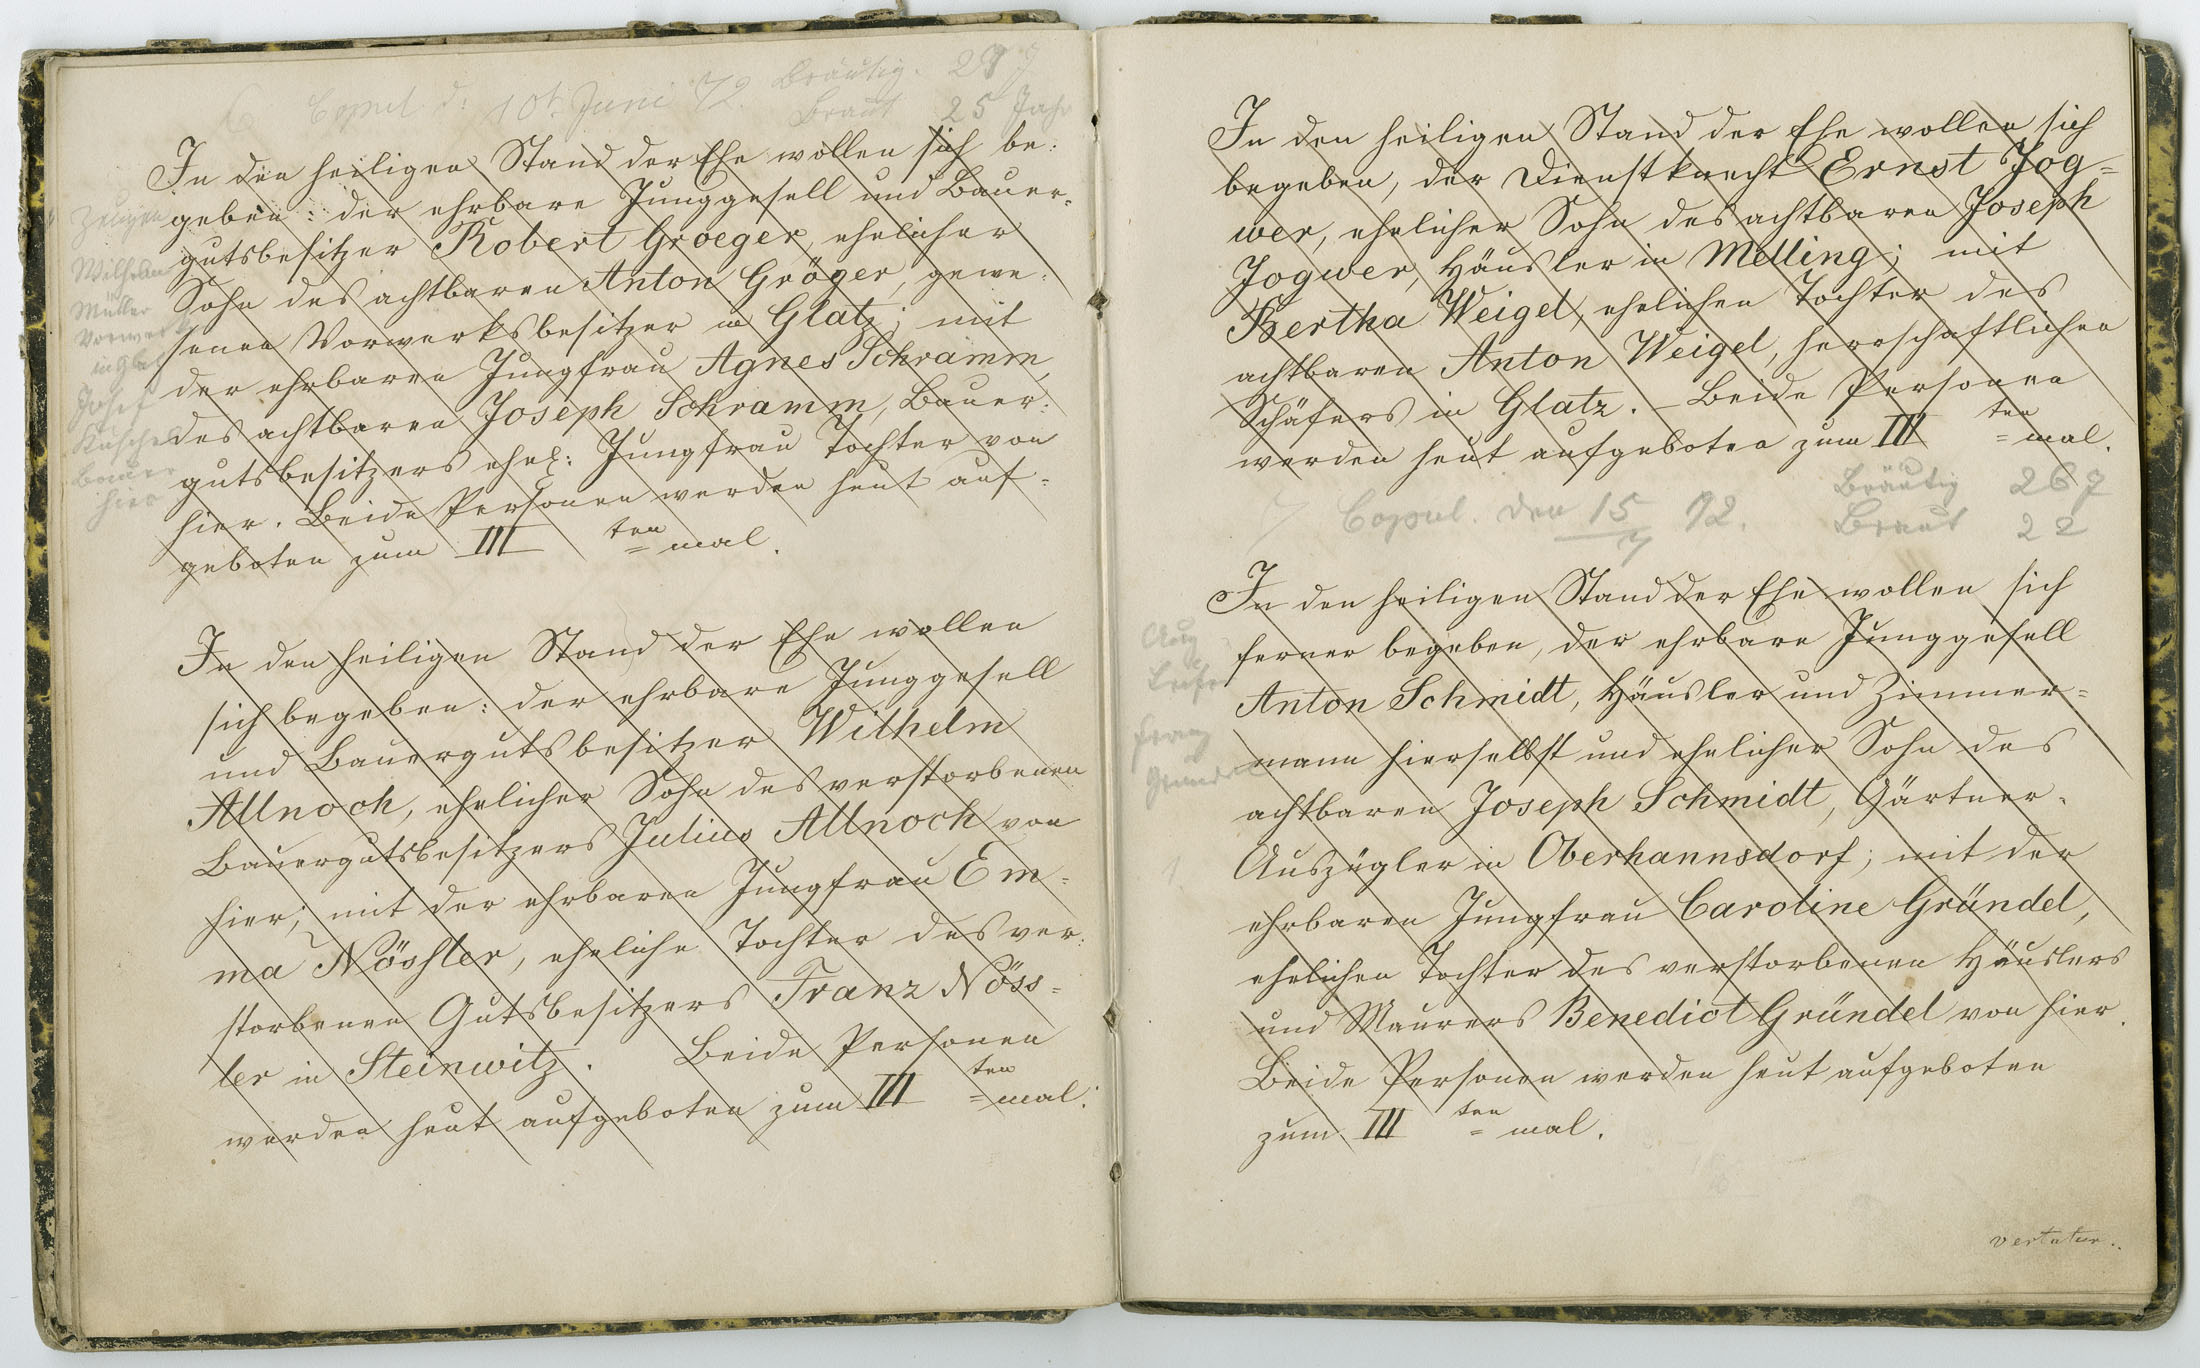 6 Copul. d. 10t. Juni 72. Bräutig. 29 J
Braut 25 Jahr
In den heiligen Stand der Ehe wollen sich be:
geben: der ehrbare Junggesell und Bauer-
gutsbesitzer Robert Groeger, ehelicher
Sohn des achtbaren Anton Gröger, gewe:
senen Vorwerksbesitzer in Glatz; mit
der ehrbaren Jungfrau Agnes Schramm,
des achtbaren Joseph Schramm, Bauer:
gutsbesitzers ehel: Jungfrau Tochter von
hier. Beide Personen werden heut auf=
geboten zum III ten = mal.
Zeugen
Wilhelm
Müller
Vorwerk
in Glatz
Josef
Kuschel
Bauer
hier
In den heiligen Stand der Ehe wollen
sich begeben: der ehrbare Junggesell
und Bauergutsbesitzer Wilhelm
Allnoch, ehelicher Sohn des verstorbenen
Bauergutsbesitzers Julius Allnoch von
hier; mit der ehrbaren Jungfrau Em=
ma Nössler, eheliche Tochter des ver:
storbenen Gutsbesitzers Franz Nöss=
ler in Steinwitz. Beide Personen
werden heut aufgeboten zum III ten = mal.
In den heiligen Stand der Ehe wollen sich
begeben, der Dienstknecht Ernst Jog=
wer, ehelicher Sohn des achtbaren Joseph
Jogwer, Häusler in Melling; mit
Bertha Weigel, ehelichen Tochter des
achtbaren Anton Weigel, herrschaftlichen
Schäfers in Glatz. – Beide Personen
werden heut aufgeboten zum III ten = mal.
7 Copul. den 15/7 72. Bräutig 26 J
Braut 22
In den heiligen Stand der Ehe wollen sich
ferner begeben, der ehrbare Junggesell
Anton Schmidt, Häusler und Zimmer=
mann hierselbst und ehelicher Sohn des
achtbaren Joseph Schmidt, Gärtner-
Auszügler in Oberhannsdorf; mit der
ehrbaren Jungfrau Caroline Gründel,
ehelichen Tochter des verstorbenen Häuslers
und Maurers Benedict Gründel von hier.
Beide Personen werden heut aufgeboten
zum III ten = mal.
Aug
Franz
Gründel
vertatur.